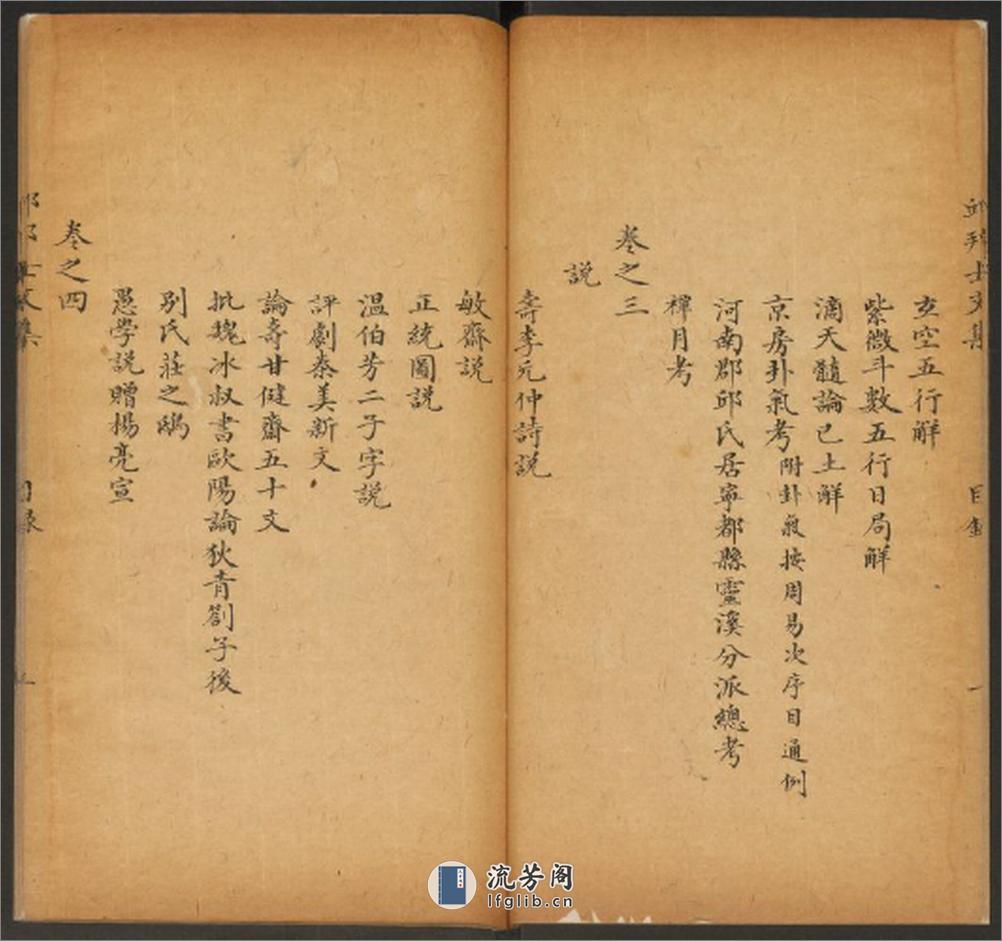 玄空五行解
紫微斗數五行日局解
滴天髓論已土解
京房卦氣考附卦氣按周易次序目通例
河南郡邱氏居寧都縣靈溪分派總考
禫月考
卷之三
說
壽李元仲詩說
敏齋說
正統圖說
溫伯芳二子字說
評劇秦美新文
論壽甘健齋五十文
批魏冰叔書歐陽論狄青劄子後
別氏莊之鴟
愚學說贈楊亮宣
卷之四
流芳阁
lfglib.cn